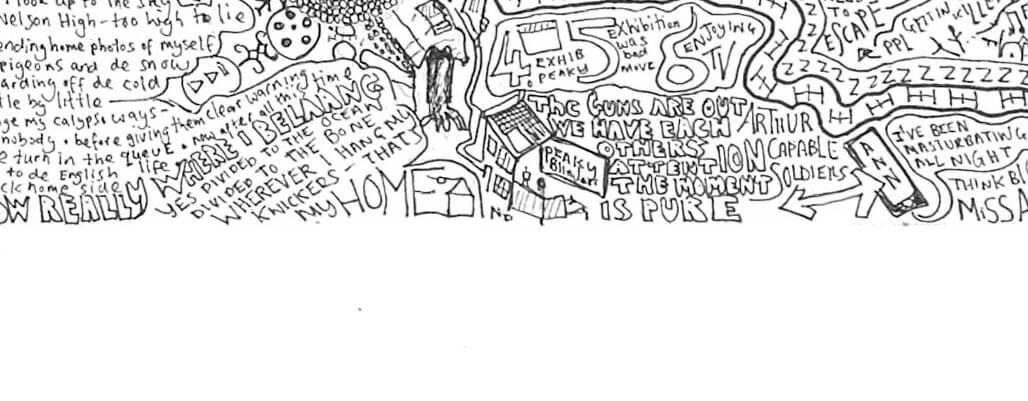 look up to the sky
Nelson High - too high to lie
ending home photos of myself
pigeons and de snow
arding off de cold
tle by little
ge my calypso ways -
nobody . before giving them clear warning time
e turn in the queue . and after all this
to de English life
ck home side
OW REALLY
WHERE I BELAANNG
YES DIVIDED TO THE OCEAN
DIVIDED TO THE BONE
WHEREVER I HANG MY
KNICKERS THATS
MY HOM
4
EXHIB
PEAKY
5
EXHIBITION
WAS
bad
MOVE
6
ENJOYING
TV
THE GUNS ARE OUT
WE HAVE EACH
OTHERS
ATTENTION
THE MOMENT
IS PURE
PEAKY
ARTHUR
CAPABLE
SOLDIERS
TO
ESCAPE
PPL GETTIN KILLE
ZZZZZZZZZZZZZ
I'VE BEEN
MASTURBATING
ALL NIGHT
THINK BU
MISS A